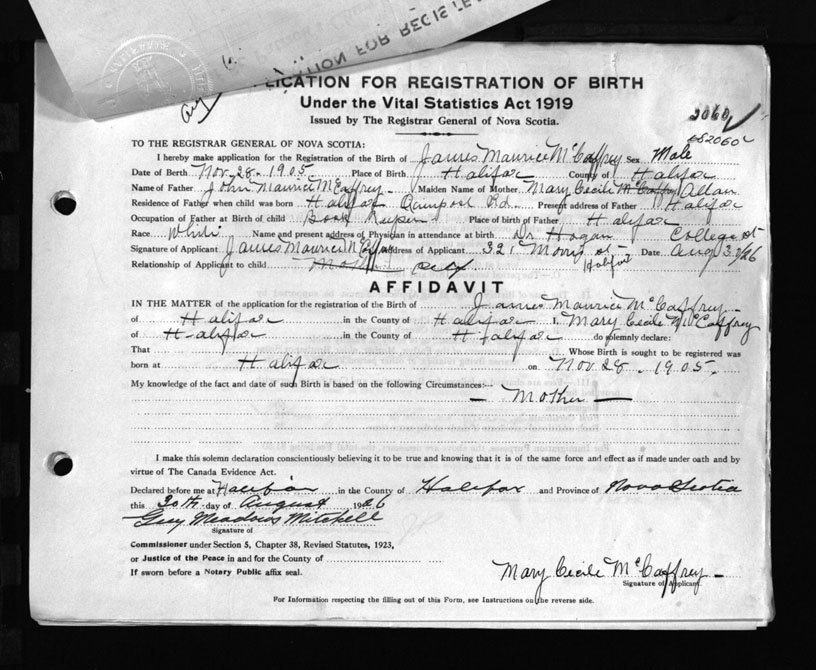 LICATION FOR REGISTRATION OF BIRTH
Under the Vital Statistics Act 1919
Issued by The Registrar General of Nova Scotia.
2060
TO THE REGISTRAR GENERAL OF NOVA SCOTIA:
I hereby make application for the Registration of the Birth of James Maurice McCaffrey Sex Male
Date of Birth Nov. 28. 1905. Place of Birth Halifax County of Halifax
Name of Father John Maurice McCaffrey Maiden Name of Mother Mary Cecile McCaffrey Allan
Residence of Father when child was born Halifax Rd. Present address of Father Halifax
Occupation of Father at Birth of child Book Keeper Place of birth of Father Halifax
Race White Name and present address of Physician in attendance at birth Dr Hogan College St
Signature of Applicant James Maurice McCaffrey Address of Applicant 321 Morris St Halifax Date Aug 30/26
Relationship of Applicant to child Mother self
AFFIDAVIT
IN THE MATTER of the application for the registration of the Birth of James Maurice McCaffrey
of Halifax in the County of Halifax I, Mary Cecile McCaffrey
of Halifax in the County of Halifax do solemnly declare:
That Whose Birth is sought to be registered was
born at Halifax on Nov 28. 1905.
My knowledge of the fact and date of such Birth is based on the following Circumstances:--
— Mother —
I make this solemn declaration conscientiously believing it to be true and knowing that it is of the same force and effect as if made under oath and by
virtue of The Canada Evidence Act.
Declared before me at Halifax in the County of Halifax and Province of Nova Scotia
this 30th day of August 1926
Guy Meadows Mitchell
Signature of
Commissioner under Section 5, Chapter 38, Revised Statutes, 1923,
or Justice of the Peace in and for the County of
If sworn before a Notary Public affix seal.
Mary Cecile McCaffrey
Signature of Applicant.
For Information respecting the filling out of this Form, see Instructions on the reverse side.